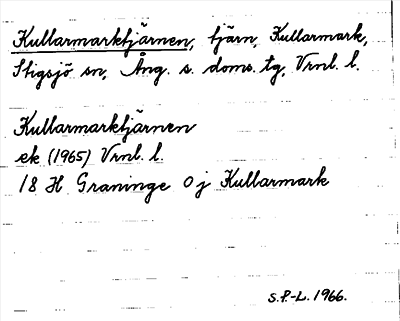 Kullarmarktjärnen, tjärn, Kullarmark,
Stigsjö sn, Ång. s. doms. tg, Vrnl. l.
Kullarmarktjärnen
ek (1965) Vrnl. l.
18 H Graninge 0 j Kullarmark
S.P.-L. 1966.